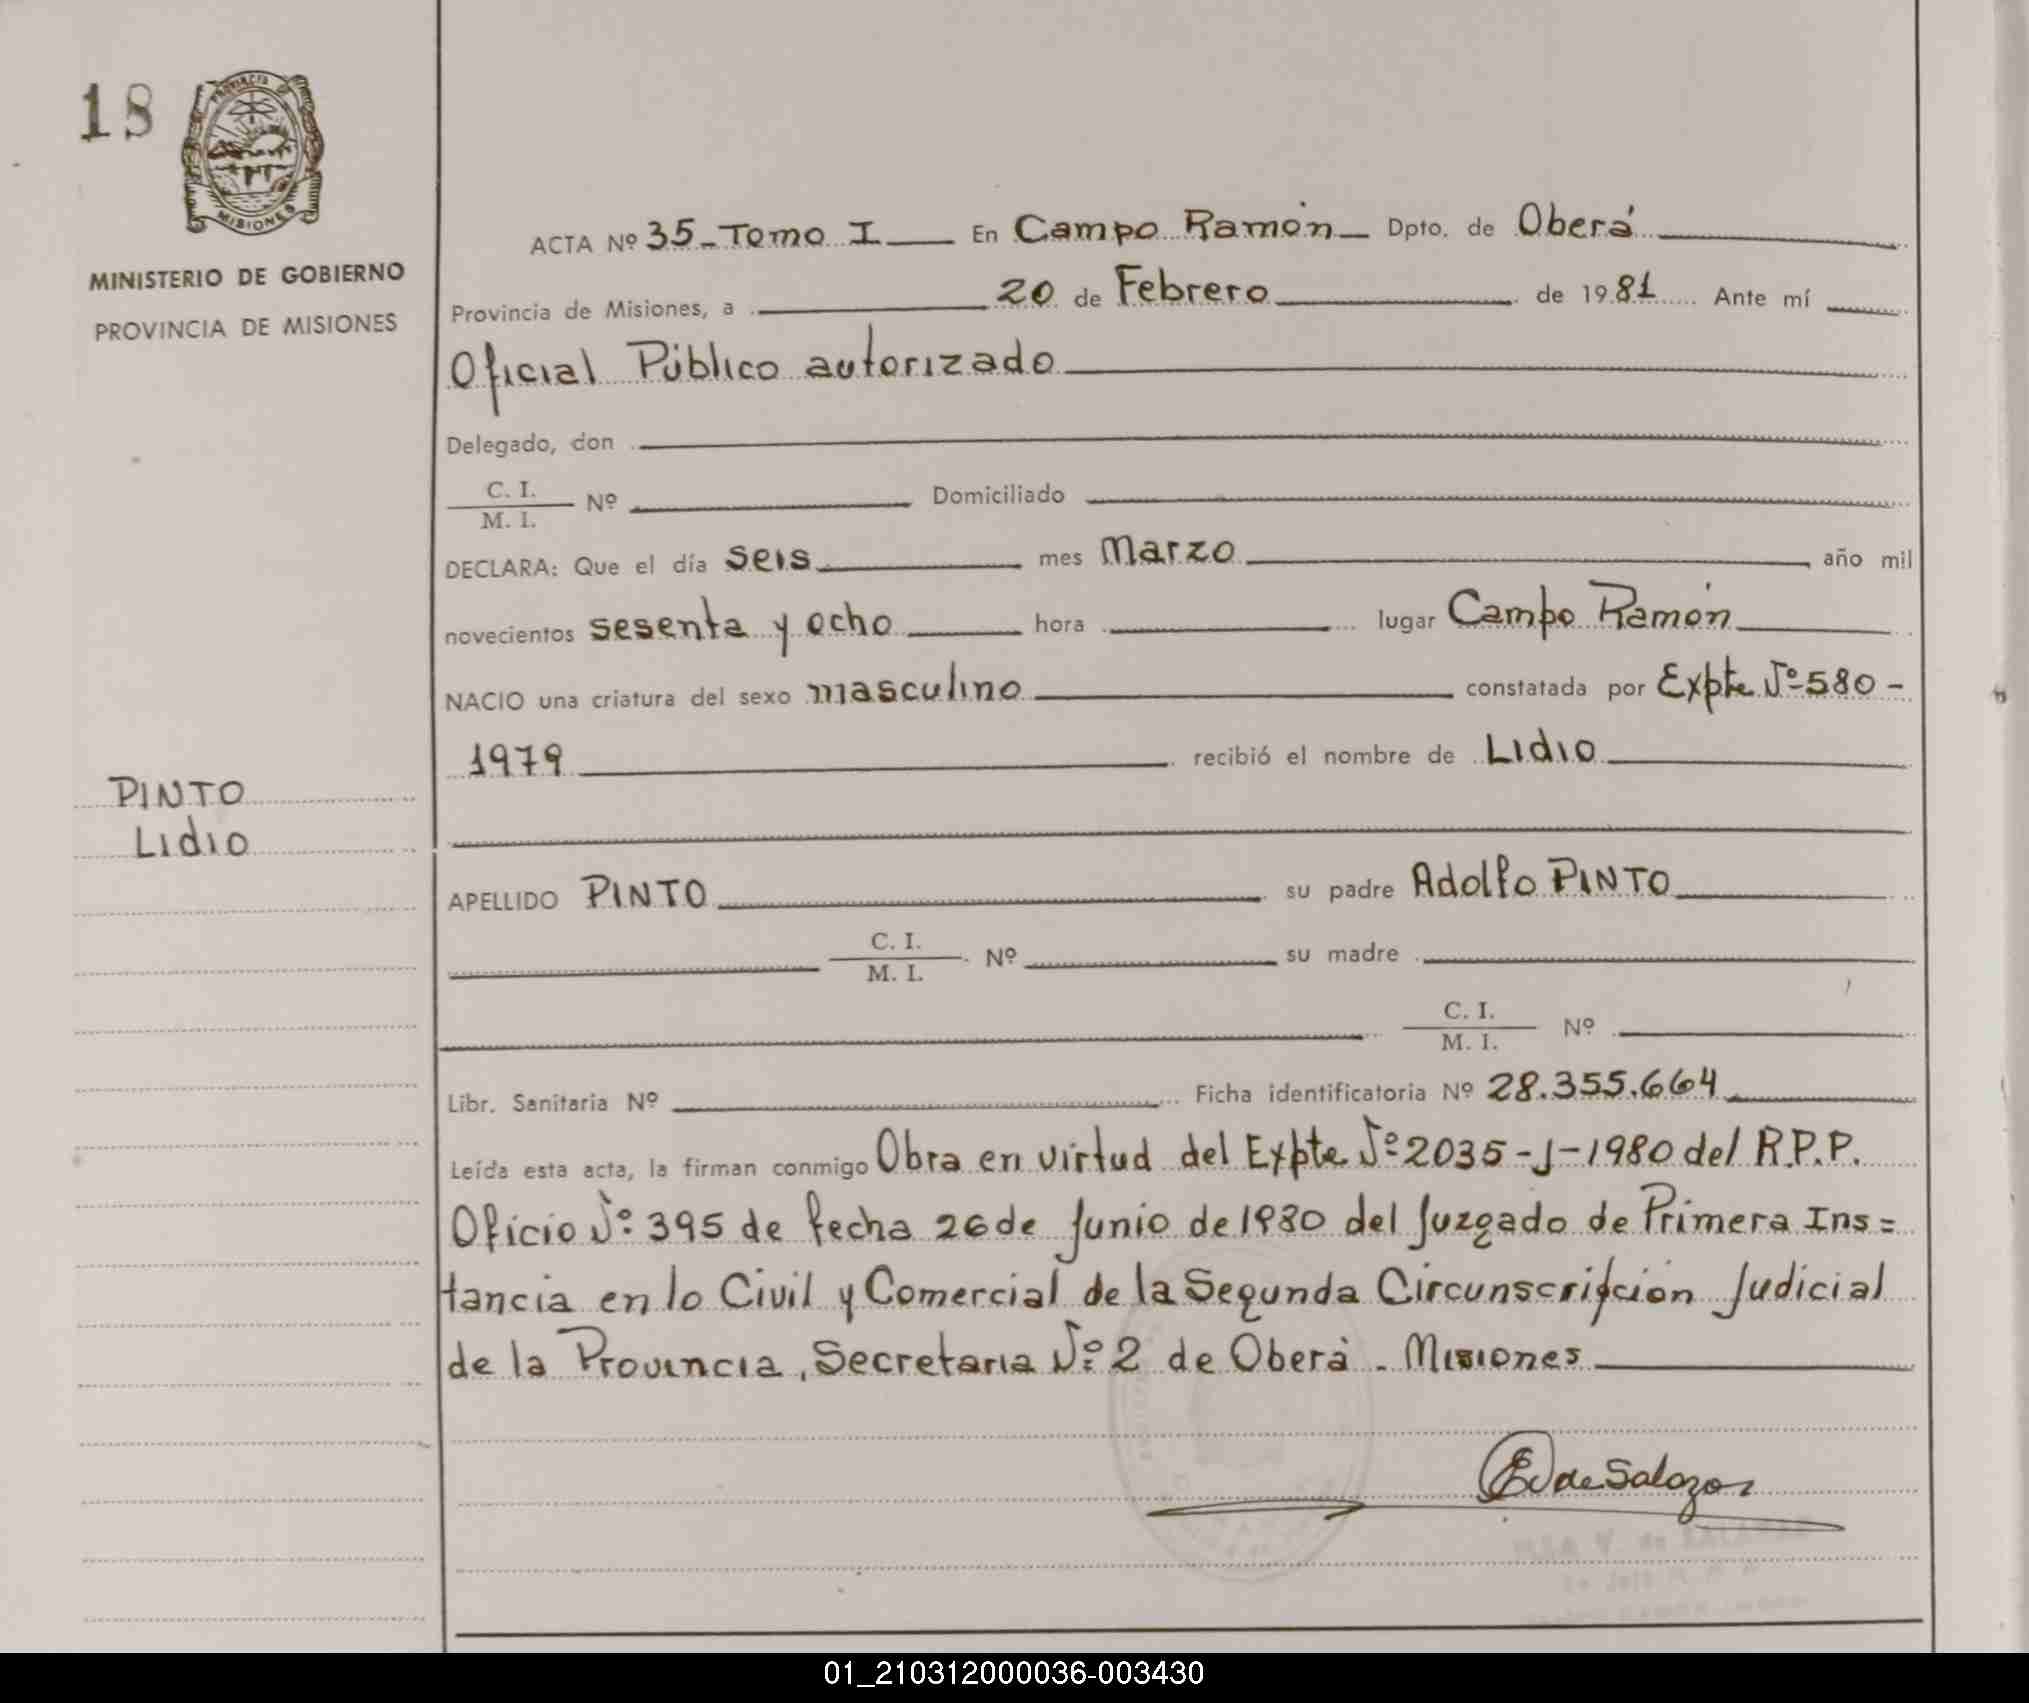 18
PROVINCIA DE
MISIONES
MINISTERIO DE GOBIERNO
PROVINCIA DE MISIONES
ACTA Nº 35 - Tomo I En Campo Ramón Dpto. de Oberá
Provincia de Misiones, a 20 de Febrero de 1981 Ante mí
Oficial Público autorizado
Delegado, don
C. I.
M. I. Nº Domiciliado
DECLARA: Que el día seis mes Marzo año mil
novecientos sesenta y ocho hora lugar Campo Ramón
NACIO una criatura del sexo masculino constatada por Expte Nº 580 -
1979 recibió el nombre de Lidio
PINTO
Lidio
APELLIDO PINTO su padre Adolfo PINTO
C. I.
M. I. Nº su madre
C. I.
M. I. Nº
Libr. Sanitaria Nº Ficha identificatoria Nº 28.355.664
Leída esta acta, la firman conmigo Obra en virtud del Expte Nº 2035 - J - 1980 del R.P.P.
Oficio Nº 395 de fecha 26 de Junio de 1980 del Juzgado de Primera Ins=
tancia en lo Civil y Comercial de la Segunda Circunscripción Judicial
de la Provincia, Secretaria Nº 2 de Oberá - Misiones
de Salazar
V. de SALAZAR
01_210312000036-003430